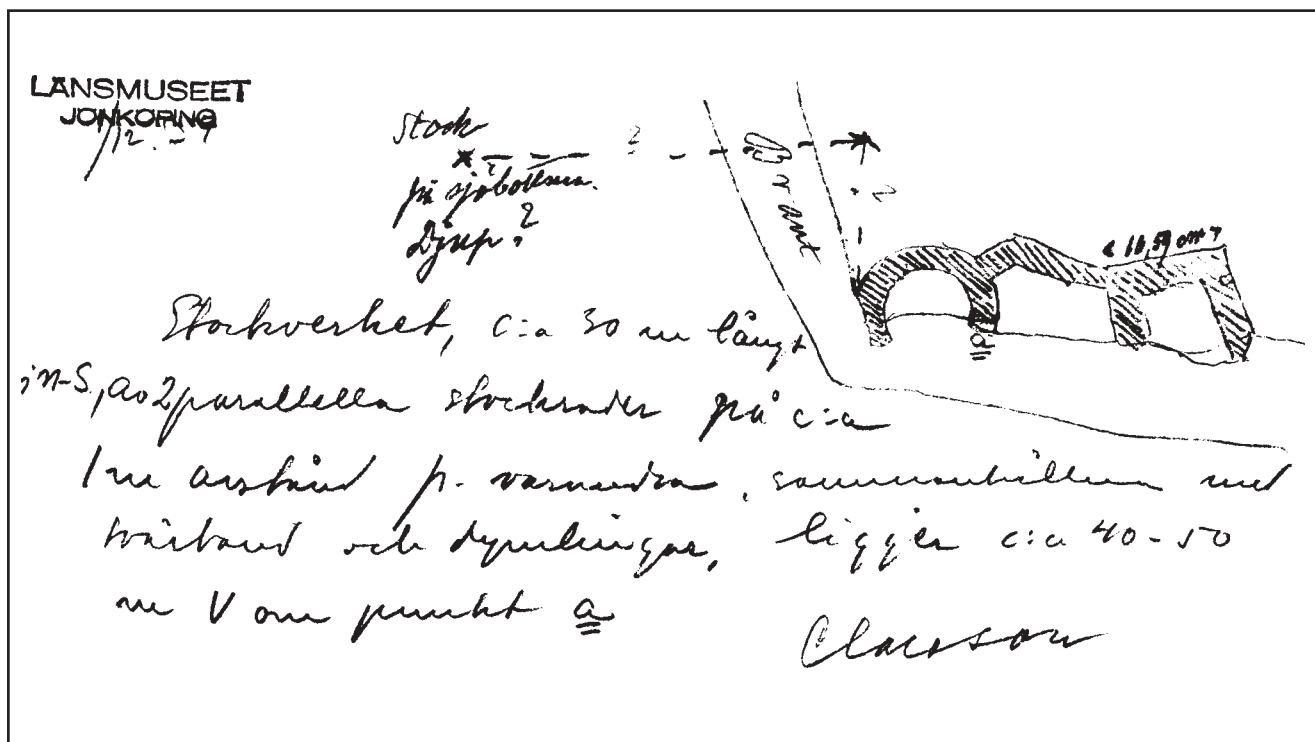 LÄNSMUSEET
JÖNKÖPING
Stock
på sjöbottnen.
Djup?
?
Brant
Stockverket, c:a 30 m långt
i N-S, av 2 parallella stockrader på c:a
1 m avstånd fr. varandra, sammanhållna med
tvärband och dymlingar, ligger c:a 40-50
m V om punkt a
Claesson